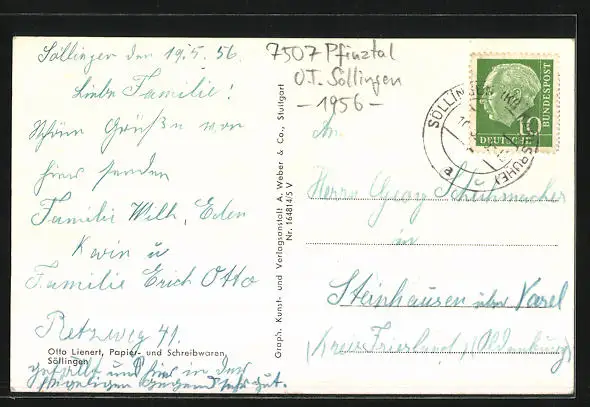 Söllingen den 19.5.56.
Liebe Familie!
Schöne Grüße von
hier senden
Familie Wilh, Eden
Karin u
Familie Erich Otto
Retzweg 41.
Otto Lienert, Papier- und Schreibwaren
Söllingen
gefällt uns hier in der
Gegend sehr gut.
Graph. Kunst- und Verlagsanstalt A. Weber & Co., Stuttgart
Nr. 164814/5 V
7507 Pfinztal
O.T. Söllingen
- 1956 -
SÖLLINGEN (KR. KARLSRUHE)
a
10
DEUTSCHE
BUNDESPOST
An
Herrn Georg Schuhmacher
in
Steinhausen über Varel
(Kreis Friesland) (Oldenburg)